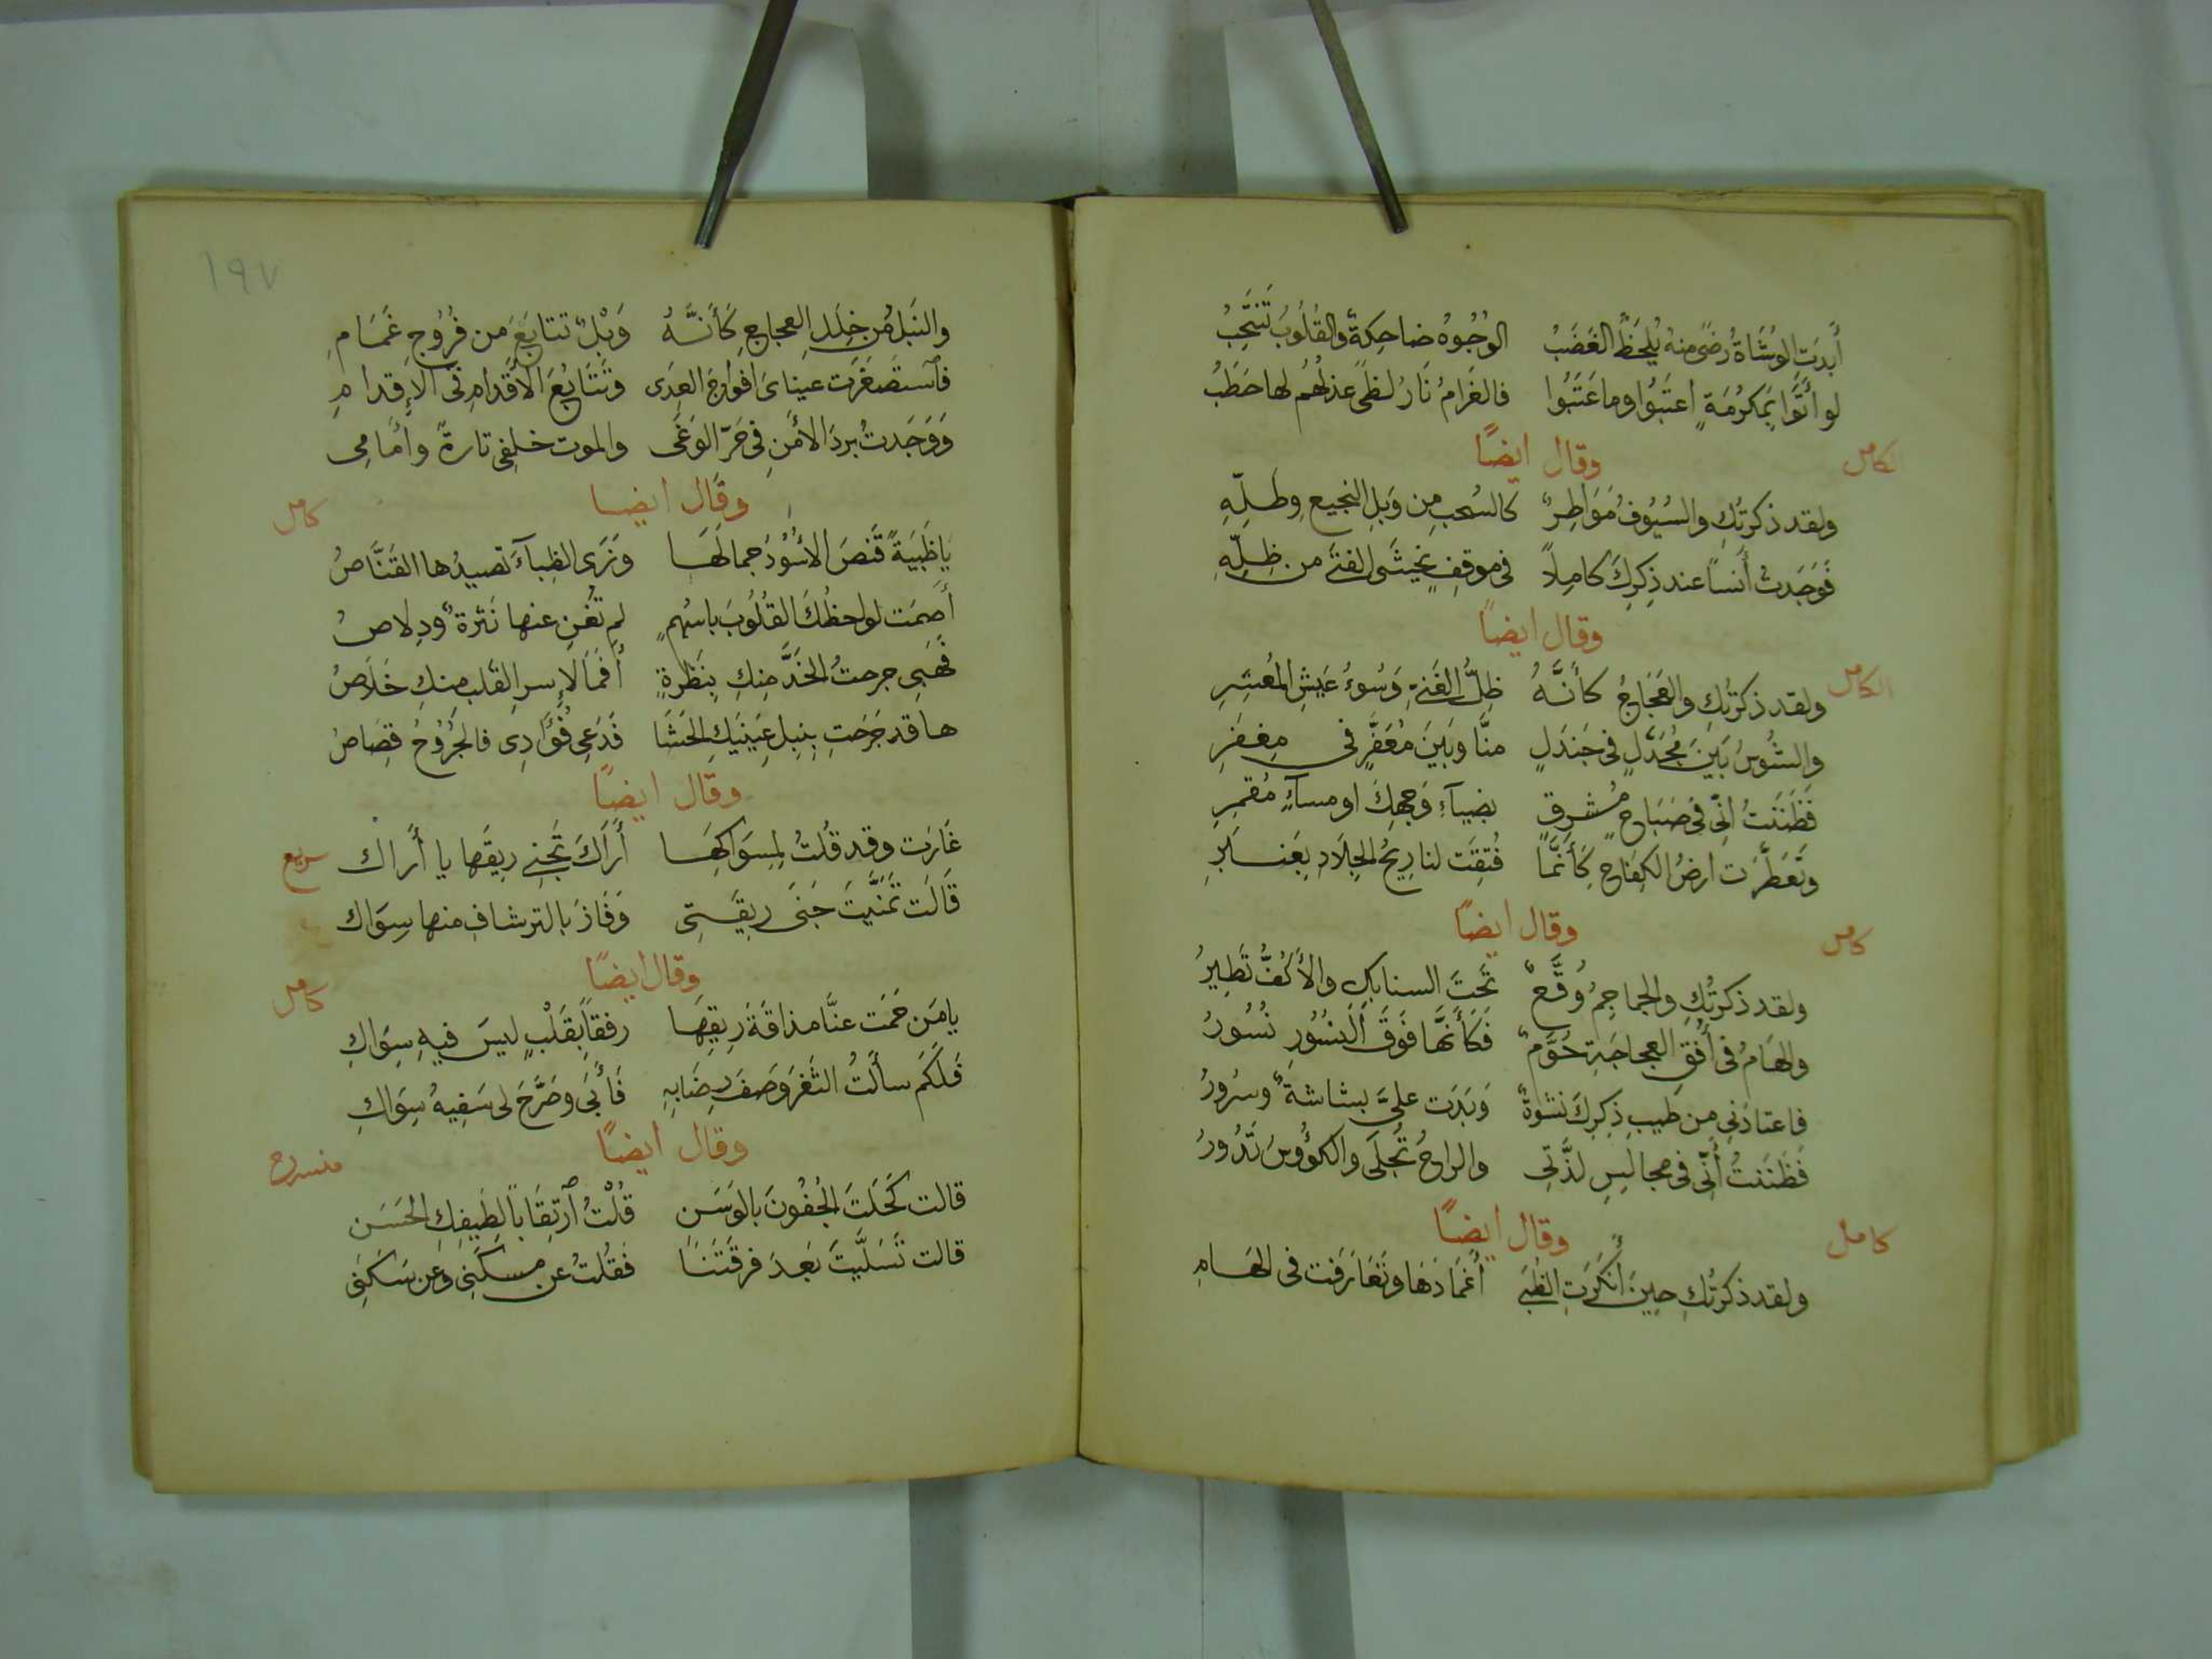 أَبدَتِ الوُشَاةُ رضًى منهُ يُلحَظُ الغَضَبُ الوُجُوهُ ضاحِكةٌ والقُلُوبُ تَنتَحِبُ
لو أَتَوا بِمَكرُمَةٍ اعتَبُوا وما عَتَبُوا فالغَرامُ نَارُ لظًى عذلُهُم لها حَطَبُ
الكامل
وقال ايضًا
ولقد ذكرتُكِ والسُيُوفُ مَوَاطِرٌ كالسُحبِ مِن وَبلِ النجيعِ وطلِّهِ
فَوَجَدتُ أُنسًا عند ذِكرِكَ كامِلاً فى موقفٍ يخشَى الفتَى من ظِلِّهِ
وقال ايضًا
الكامل
ولقد ذكرتُكِ والعَجَاجُ كأَنَّهُ ظِلُّ الغَنيِّ وَسُوءُ عَيشِ المُعسِرِ
والشُوسُ بَينَ مُجَدَّلٍ فى جَندَلٍ منَّا وبَينَ مُعَفَّرٍ فى مِغفَرِ
فَظَنَنتُ انّى فى صَبَاحٍ مُشرِقٍ بضيآءِ وَجهِكَ او مسآءٍ مُقمِرِ
وتَعَطَّرَت ارضُ الكِفَاحِ كَأَنَّمَا فُتِقَت لنا رِيحُ الجِلَادِ بعَنبَرِ
وقال ايضًا
كامل
ولقد ذكرتُكِ والجماجِمُ وُقَّعٌ تَحتَ السنابكِ والأَكُفُّ تَطِيرُ
والهَامُ فى أُفُقِ العجاجَةِ حُوَّمٌ فَكَأَنَّها فَوقَ النُسُورِ نُسُورُ
فاعتادَنى من طيبِ ذِكرِكَ نشوةٌ وَبَدَت علىَّ بشاشةٌ وسرُورُ
فَظَنَنتُ أَنّى فى مجالِسِ لذَّتى والراحُ تُجلَى والكؤُوسُ تَدُورُ
وقال ايضًا
كامل
ولقد ذكرتُكِ حينَ أَنكَرَتِ الظُبَى أَغمَادَهَا وتَعَارَفَت فى الهَامِ
١٩٧
والنَبلُ مِن خِلَلِ العجاجِ كَأَنَّهُ وَبْلٌ تتابَعَ من فُرُوجِ غَمَامِ
فٱستَصغَرَت عيناىَ افواجَ العِدَى وتَتَابُعَ الأَقدامِ فى الإِقدامِ
وَوَجَدتُ بردَ الأمنِ فى حَرّ الوَغَى والموت خلفى تارةً وأَمامِى
وقال ايضا
كامل
يا ظَبيَةً قَنَصَ الأُسُودَ جمالُهَا وَنَرَى الظِبآءَ تَصيدُها القَنَّاصُ
أَصمَت لواحظُكَ القُلُوبَ باسهُمٍ لم تُغنِ عنها نَثرةٌ ودِلاصُ
فَهَبِى جرحتُ الخَدَّ مِنكِ بِنَظرةٍ أَفَمَا لإِسرِ القلبِ منكِ خَلَاصُ
ها قد جَرَحتِ بِنبلِ عَينَيكِ الحَشَا فَدَعِى فُؤَادِى فالجُرُوحُ قِصَاصُ
وقال ايضًا
سريع
غَارَت وقد قُلتُ لِمِسوَاكِهَا أَرَاكَ تَجنِى رِيقَها يا أَراك
قَالَت تَمَنَّيتَ جَنَى رِيقَتِى وَفَازَ بالترشافِ منها سِوَاك
وقال ايضًا
كامل
يا مَن حَمَت عنَّا مذاقَةَ رِيقِهَا رفقًا بقَلْبٍ ليسَ فيهِ سِوَاكِ
فَلَكَم سأَلتُ الثَغرَ وَصفَ رِضَابِهِ فَأَبَى وصَرَّحَ لى سَفِيهُ سِوَاكِ
وقال ايضًا
منسرح
قالت كَحَلتَ الجُفُونَ بالوَسَنِ قُلْتُ ٱرتِقَابًا لِطَيفِكِ الحَسَن
قالت تَسَلَّيتَ بَعدَ فرقَتَنَا فَقُلتُ عن مسكَنِى وعَن سَكَنِى